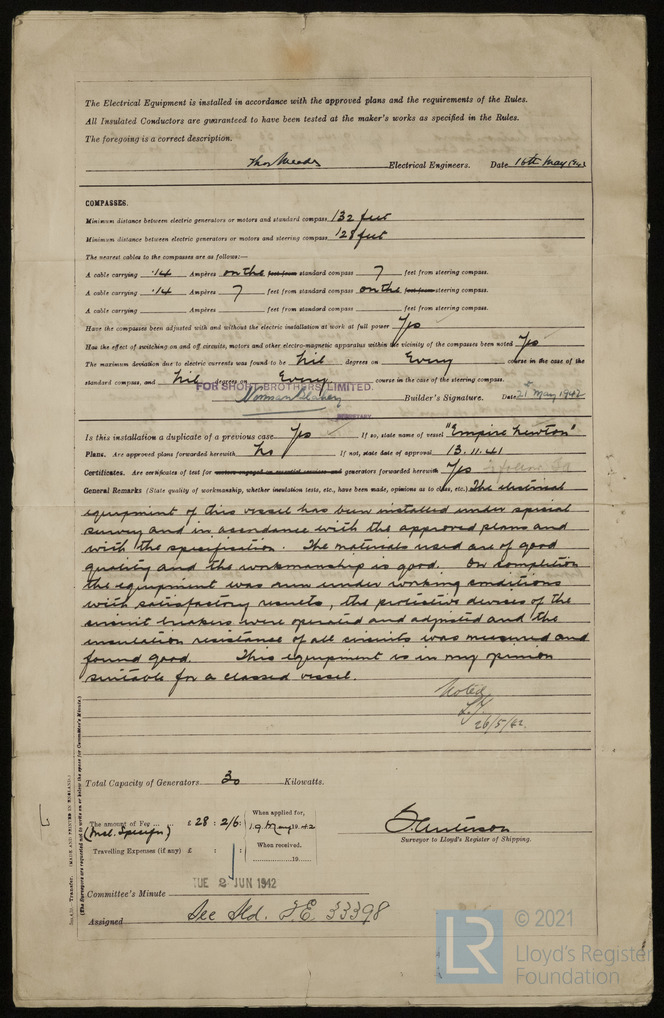 The Electrical Equipment is installed in accordance with the approved plans and the requirements of the Rules.
All Insulated Conductors are guaranteed to have been tested at the maker's works as specified in the Rules.
The foregoing is a correct description.
Electrical Engineers. Date 16th May
COMPASSES.
Minimum distance between electric generators or motors and standard compass 132 feet
Minimum distance between electric generators or motors and steering compass 128 feet
The nearest cables to the compasses are as follows:—
A cable carrying .14 Ampères on the feet from standard compass 7 feet from steering compass.
A cable carrying .14 Ampères 7 feet from standard compass on the feet from steering compass.
A cable carrying Ampères feet from standard compass feet from steering compass.
Have the compasses been adjusted with and without the electric installation at work at full power Yes
Has the effect of switching on and off circuits, motors and other electro-magnetic apparatus within the vicinity of the compasses been noted Yes
The maximum deviation due to electric currents was found to be Nil degrees on Every course in the case of the
standard compass, and Nil degrees on Every course in the case of the steering compass.
FOR SHORT BROTHERS LIMITED.
Builder's Signature. Date 21st May 1942
SECRETARY.
Is this installation a duplicate of a previous case Yes If so, state name of vessel "Empire Newton"
Plans. Are approved plans forwarded herewith No If not, state date of approval 13.11.41
Certificates. Are certificates of test for motors engaged on essential services and generators forwarded herewith Yes
General Remarks (State quality of workmanship, whether insulation tests, etc., have been made, opinions as to class, etc.) The electrical
equipment of this vessel has been installed under special
survey and in accordance with the approved plans and
with the specification. The materials used are of good
quality and the workmanship is good. On completion
the equipment was run under working conditions
with satisfactory results, the protective devices of the
circuit breakers were operated and adjusted and the
insulation resistance of all circuits was measured and
found good. This equipment is in my opinion
suitable for a classed vessel.
Noted
26/5/42.
Total Capacity of Generators 30 Kilowatts.
The amount of Fee ... ... £ 28 : 2/6 : When applied for,
(Incl. Specifn) 19 May 1942
Travelling Expenses (if any) £ : : When received.
19
Surveyor to Lloyd's Register of Shipping.
TUE 2 JUN 1942
Committee's Minute
Assigned See F.E. 33398
(The Surveyors are requested not to write on or below the space for Committee's Minute.)
Transfer. (MADE AND PRINTED IN ENGLAND.)
LR
© 2021
Lloyd's Register
Foundation